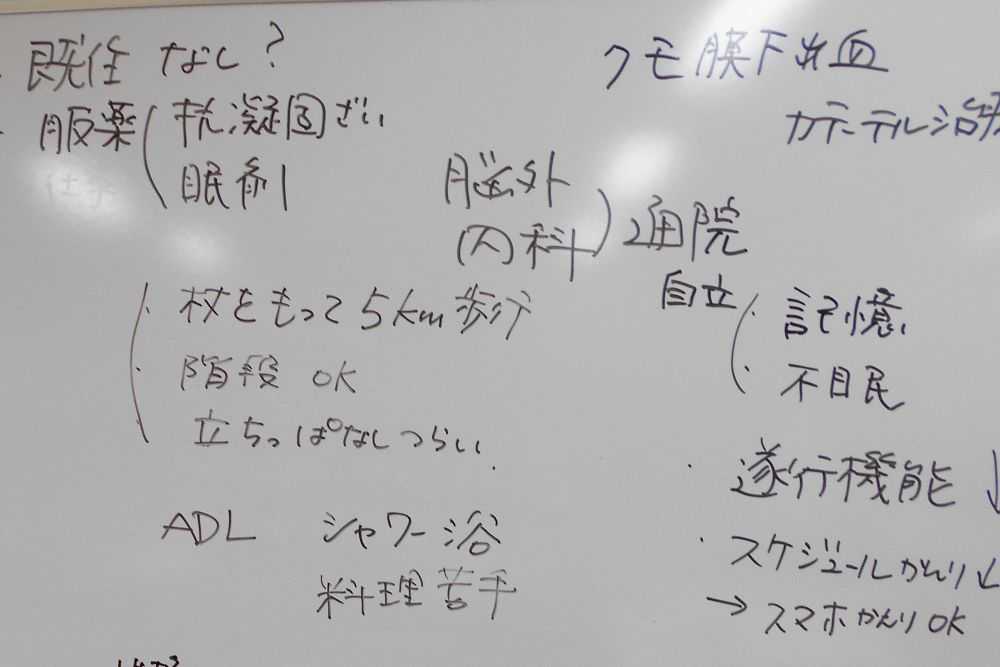 既往 なし?
服薬 抗凝固ざい
眠剤
クモ膜下出血
カテーテル治療
脳外
内科
通院
自立
記憶
不眠
・杖をもって5km歩行
・階段 OK
立ちっぱなしつらい.
・遂行機能 ↓
・スケジュールかんり↓
→ スマホかんりOK
ADL シャワー浴
料理苦手